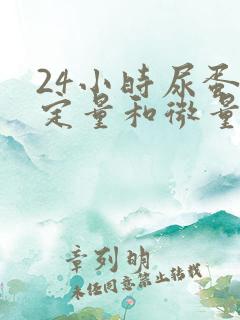 24小时尿蛋
定量和微量
章列明
未经同意禁止转载